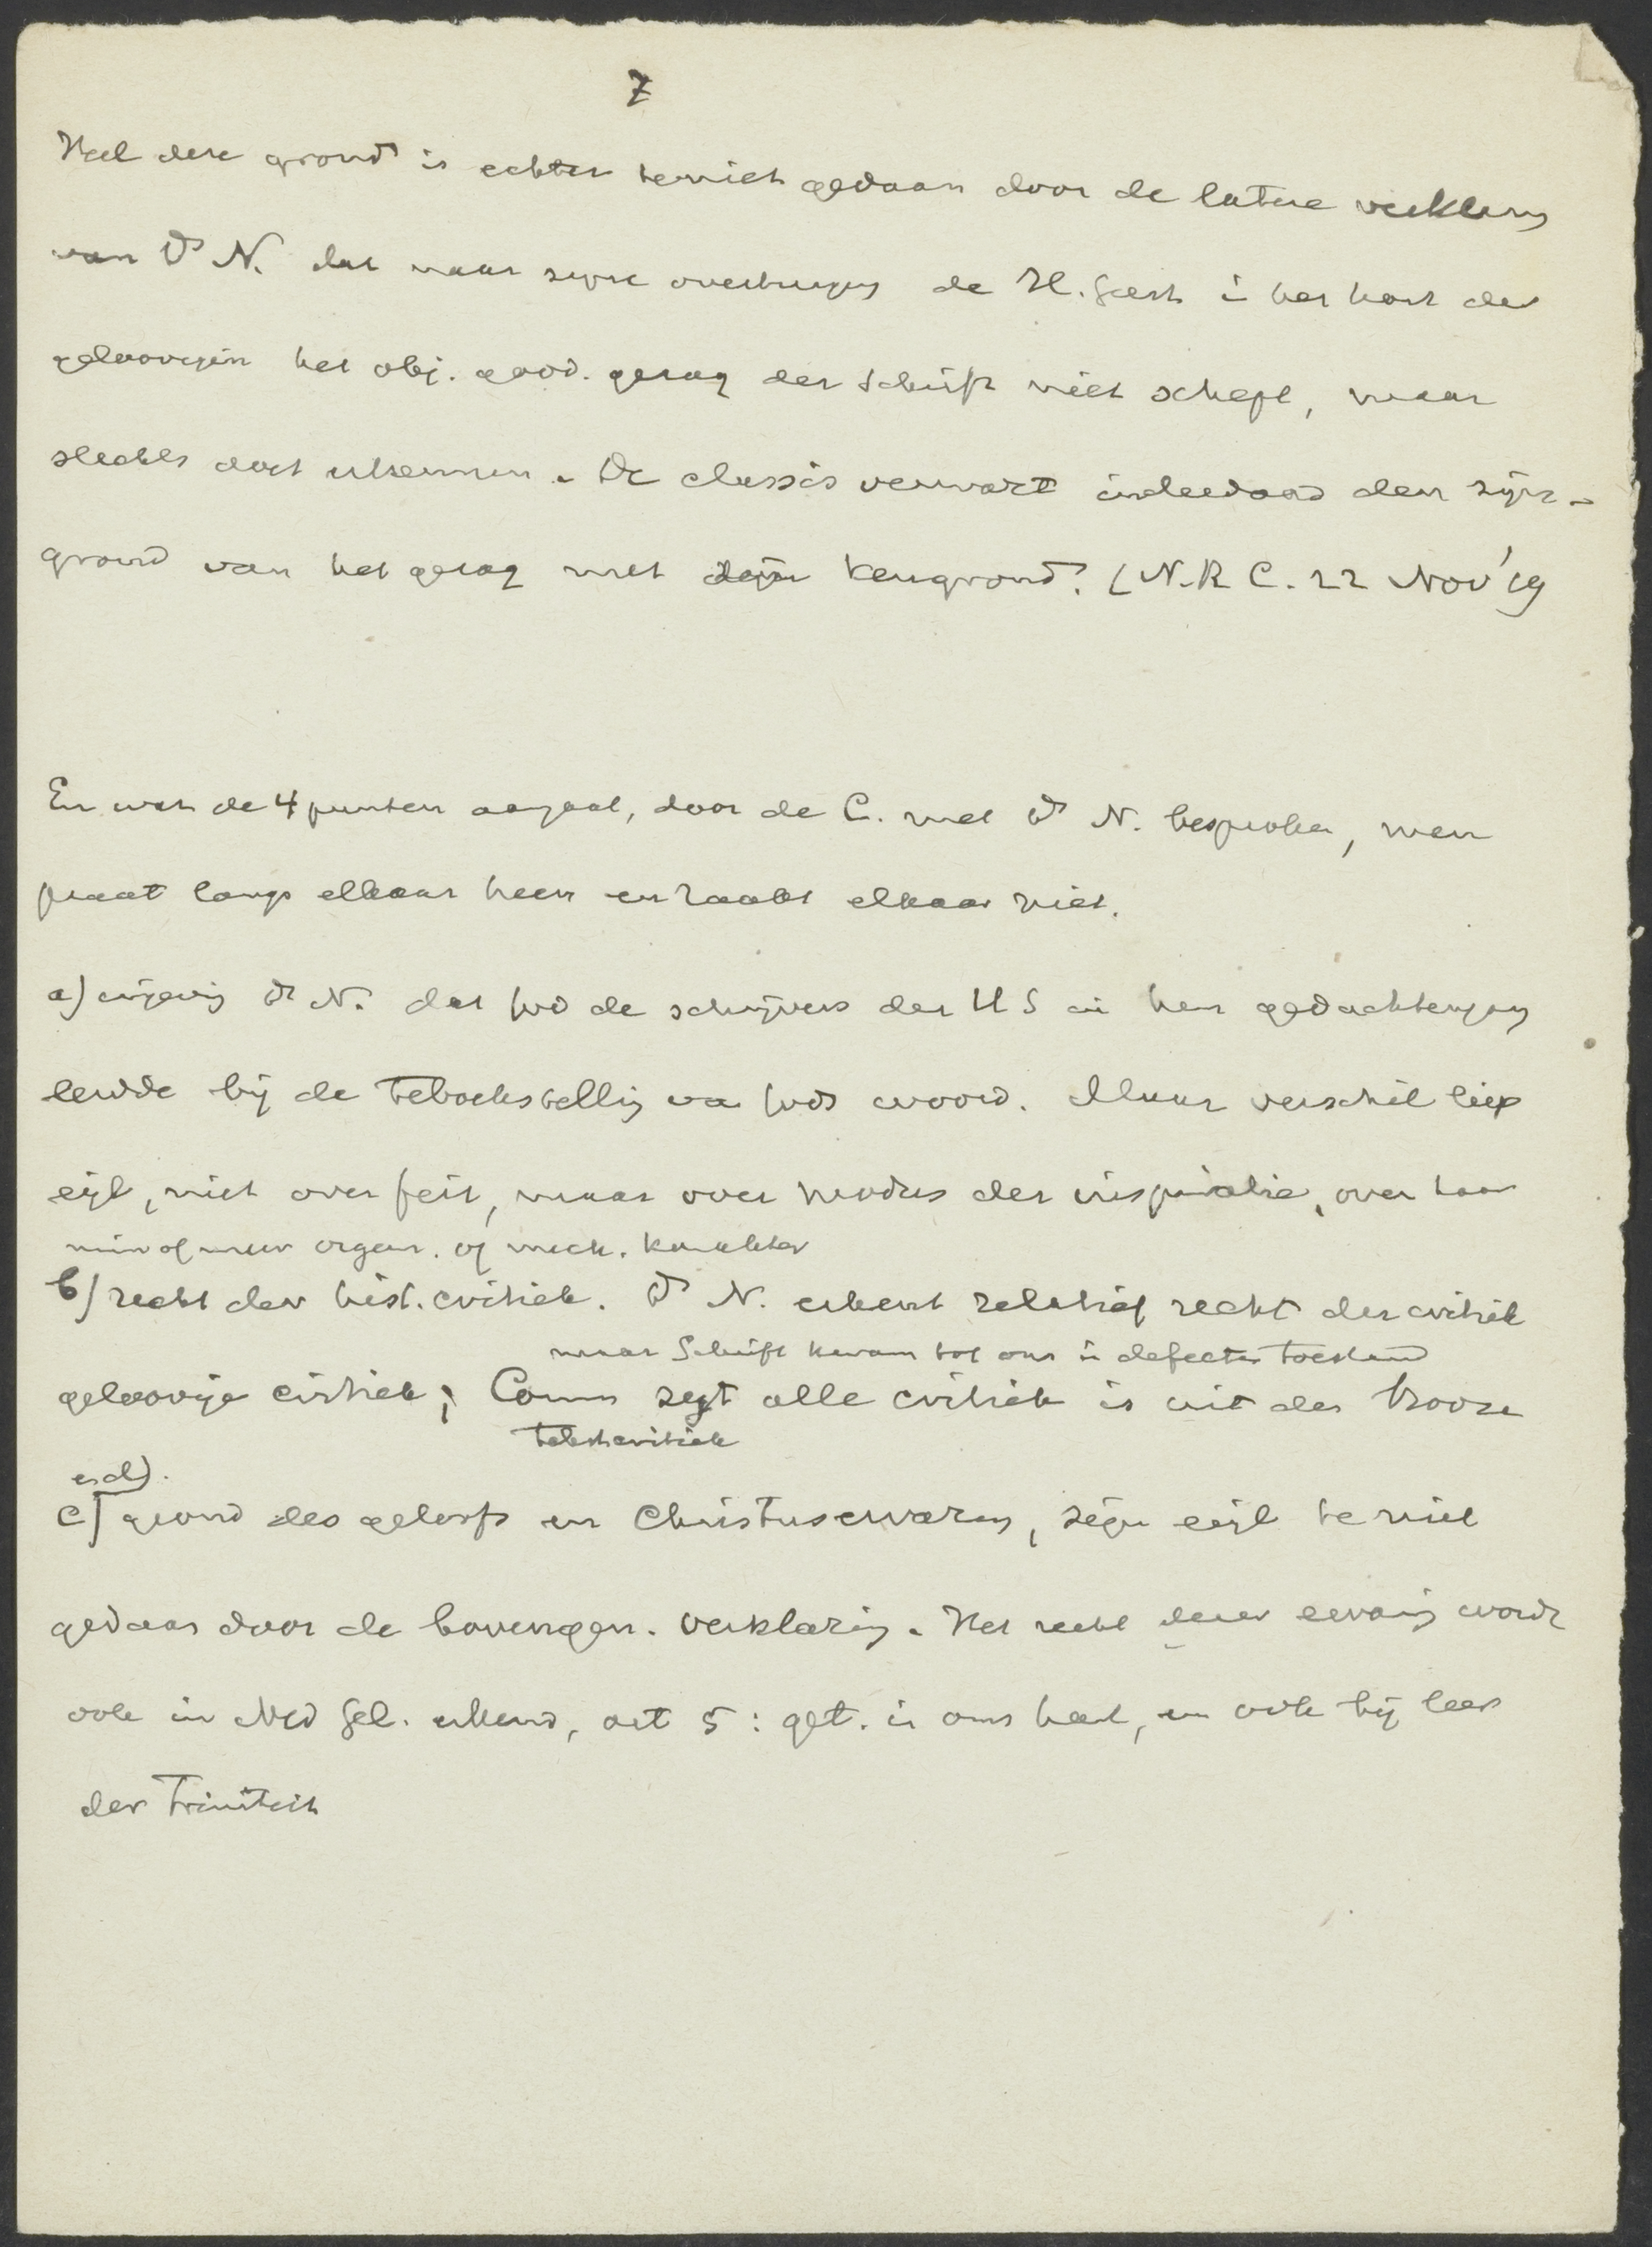 7
Heel deze grond is echter teniet gedaan door de latere verklaring
van Ds N. dat naar zijne overtuiging de H. Geest in het hart der
geloovigen het obj. godd. gezag der Schrift niet schept, maar
slechts doet erkennen. De classis verwart inderdaad den zijns-
grond van het gezag met den kengrond. (N.R.C. 22 Nov '19
En wat de 4 punten aangaat, door de C. met Ds N. besproken, men
praat langs elkaar heen en raakt elkaar niet.
a) Ds N. dat God de schrijvers der H S in hun gedachtengang
leidde bij de teboekstelling van Gods woord. Maar verschil liep
eigl, niet over feit, maar over modus der inspiratie, over haar
min of meer organ. of mech. karakter
b) recht der hist. critiek. Ds N. erkent relatief recht der critiek
maar Schrift kwam tot ons in defecten toestand
geloovige critiek; Comm zegt alle critiek is uit den booze
tekstkritiek
en d).
c) grond des geloofs en Christuservaring, zijn eigl te niet
gedaan door de bovengen. verklaring. Het recht dezer ervaring wordt
ook in Ned Gel. erkend, art 5: get. in ons hart, en ook bij leer
der Triniteit